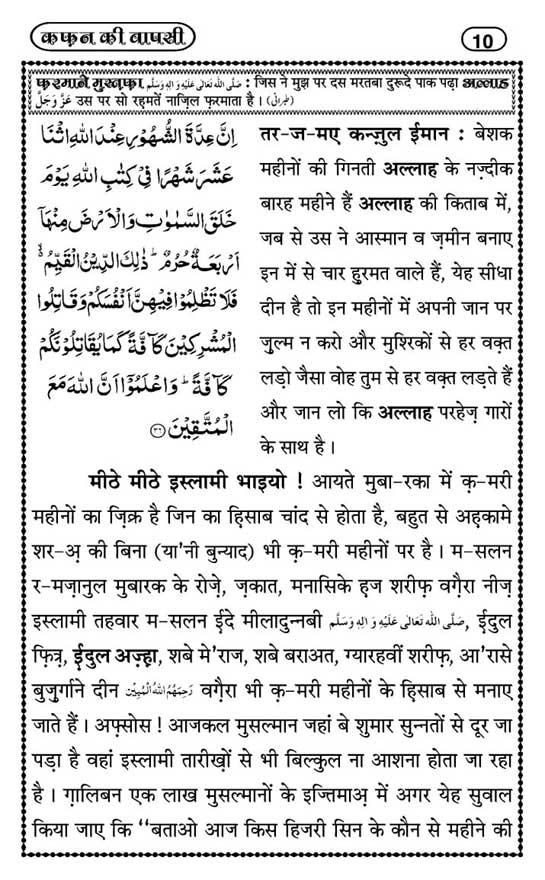 कफ़न की वापसी
10
फ़रमाने मुस्तफ़ा صَلَّى اللهُ تَعَالٰى عَلَيْهِ وَاٰلِهٖ وَسَلَّم : जिस ने मुझ पर दस मरतबा दुरूदे पाक पढ़ा अल्लाह
عَزَّوَجَلَّ उस पर सो रहमतें नाज़िल फ़रमाता है । (طبرانی)
اِنَّ عِدَّةَ الشُّهُوْرِ عِنْدَ اللهِ اثْنَا
عَشَرَ شَهْرًا فِیْ كِتٰبِ اللهِ یَوْمَ
خَلَقَ السَّمٰوٰتِ وَالْاَرْضَ مِنْهَاۤ
اَرْبَعَةٌ حُرُمٌ ؕ ذٰلِكَ الدِّیْنُ الْقَیِّمُ ۙ۬
فَلَا تَظْلِمُوْا فِیْهِنَّ اَنْفُسَكُمْ وَقَاتِلُوا
الْمُشْرِكِیْنَ كَآفَّةً كَمَا یُقَاتِلُوْنَكُمْ
كَآفَّةً ؕ وَاعْلَمُوْۤا اَنَّ اللهَ مَعَ
الْمُتَّقِیْنَ ﴿۳۶﴾
तर-ज-मए कन्ज़ुल ईमान : बेशक
महीनों की गिनती अल्लाह के नज़्दीक
बारह महीने हैं अल्लाह की किताब में,
जब से उस ने आस्मान व ज़मीन बनाए
इन में से चार हुरमत वाले हैं, येह सीधा
दीन है तो इन महीनों में अपनी जान पर
ज़ुल्म न करो और मुश्रिकों से हर वक़्त
लड़ो जैसा वोह तुम से हर वक़्त लड़ते हैं
और जान लो कि अल्लाह परहेज़ गारों
के साथ है ।
मीठे मीठे इस्लामी भाइयो ! आयते मुबा-रका में क़-मरी
महीनों का ज़िक्र है जिन का हिसाब चांद से होता है, बहुत से अह़कामे
शर-अ़ की बिना (या'नी बुन्याद) भी क़-मरी महीनों पर है । म-सलन
र-मज़ानुल मुबारक के रोज़े, ज़कात, मनासिके ह़ज शरीफ़ वग़ैरा नीज़
इस्लामी तहवार म-सलन ई़दे मीलादुन्नबी صَلَّى اللهُ تَعَالٰى عَلَيْهِ وَاٰلِهٖ وَسَلَّم, ई़दुल
फ़ित्र, ई़दुल अज़्ह़ा, शबे मे'राज, शबे बराअत, ग्यारहवीं शरीफ़, आ'रासे
बुज़ुर्गाने दीन رَحِمَهُمُ اللهُ الْمُبِيْن वग़ैरा भी क़-मरी महीनों के ह़िसाब से मनाए
जाते हैं । अफ़्सोस ! आजकल मुसल्मान जहां बे शुमार सुन्नतों से दूर जा
पड़ा है वहां इस्लामी तारीख़ों से भी बिल्कुल ना आशना होता जा रहा
है । ग़ालिबन एक लाख मुसल्मानों के इज्तिमाअ़ में अगर येह सुवाल
किया जाए कि “बताओ आज किस हिजरी सिन के कौन से महीने की